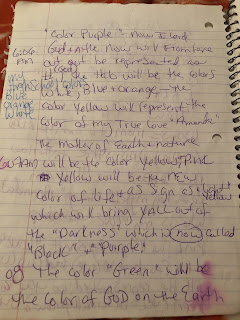 "Color Purple" - Now is Lord
6:06 God & in the Now will From here
AM out not be represented as
"God"
my # The Hub will be the Colors
High School Colors
Blue White, Blue + orange - The
orange
White color Yellow will represent the
Color of my True Love "Amanda"
The mother of Earth + nature
6:07 AM will be the Color Yellow, Pink
Yellow will be the new
Color of Life + as Sign of "Light" Yellow
which will bring YALL out of
the "Darkness" which is now called
"Black" + "Purple"
08 The Color "Green" will be
the Color of GOD on the Earth